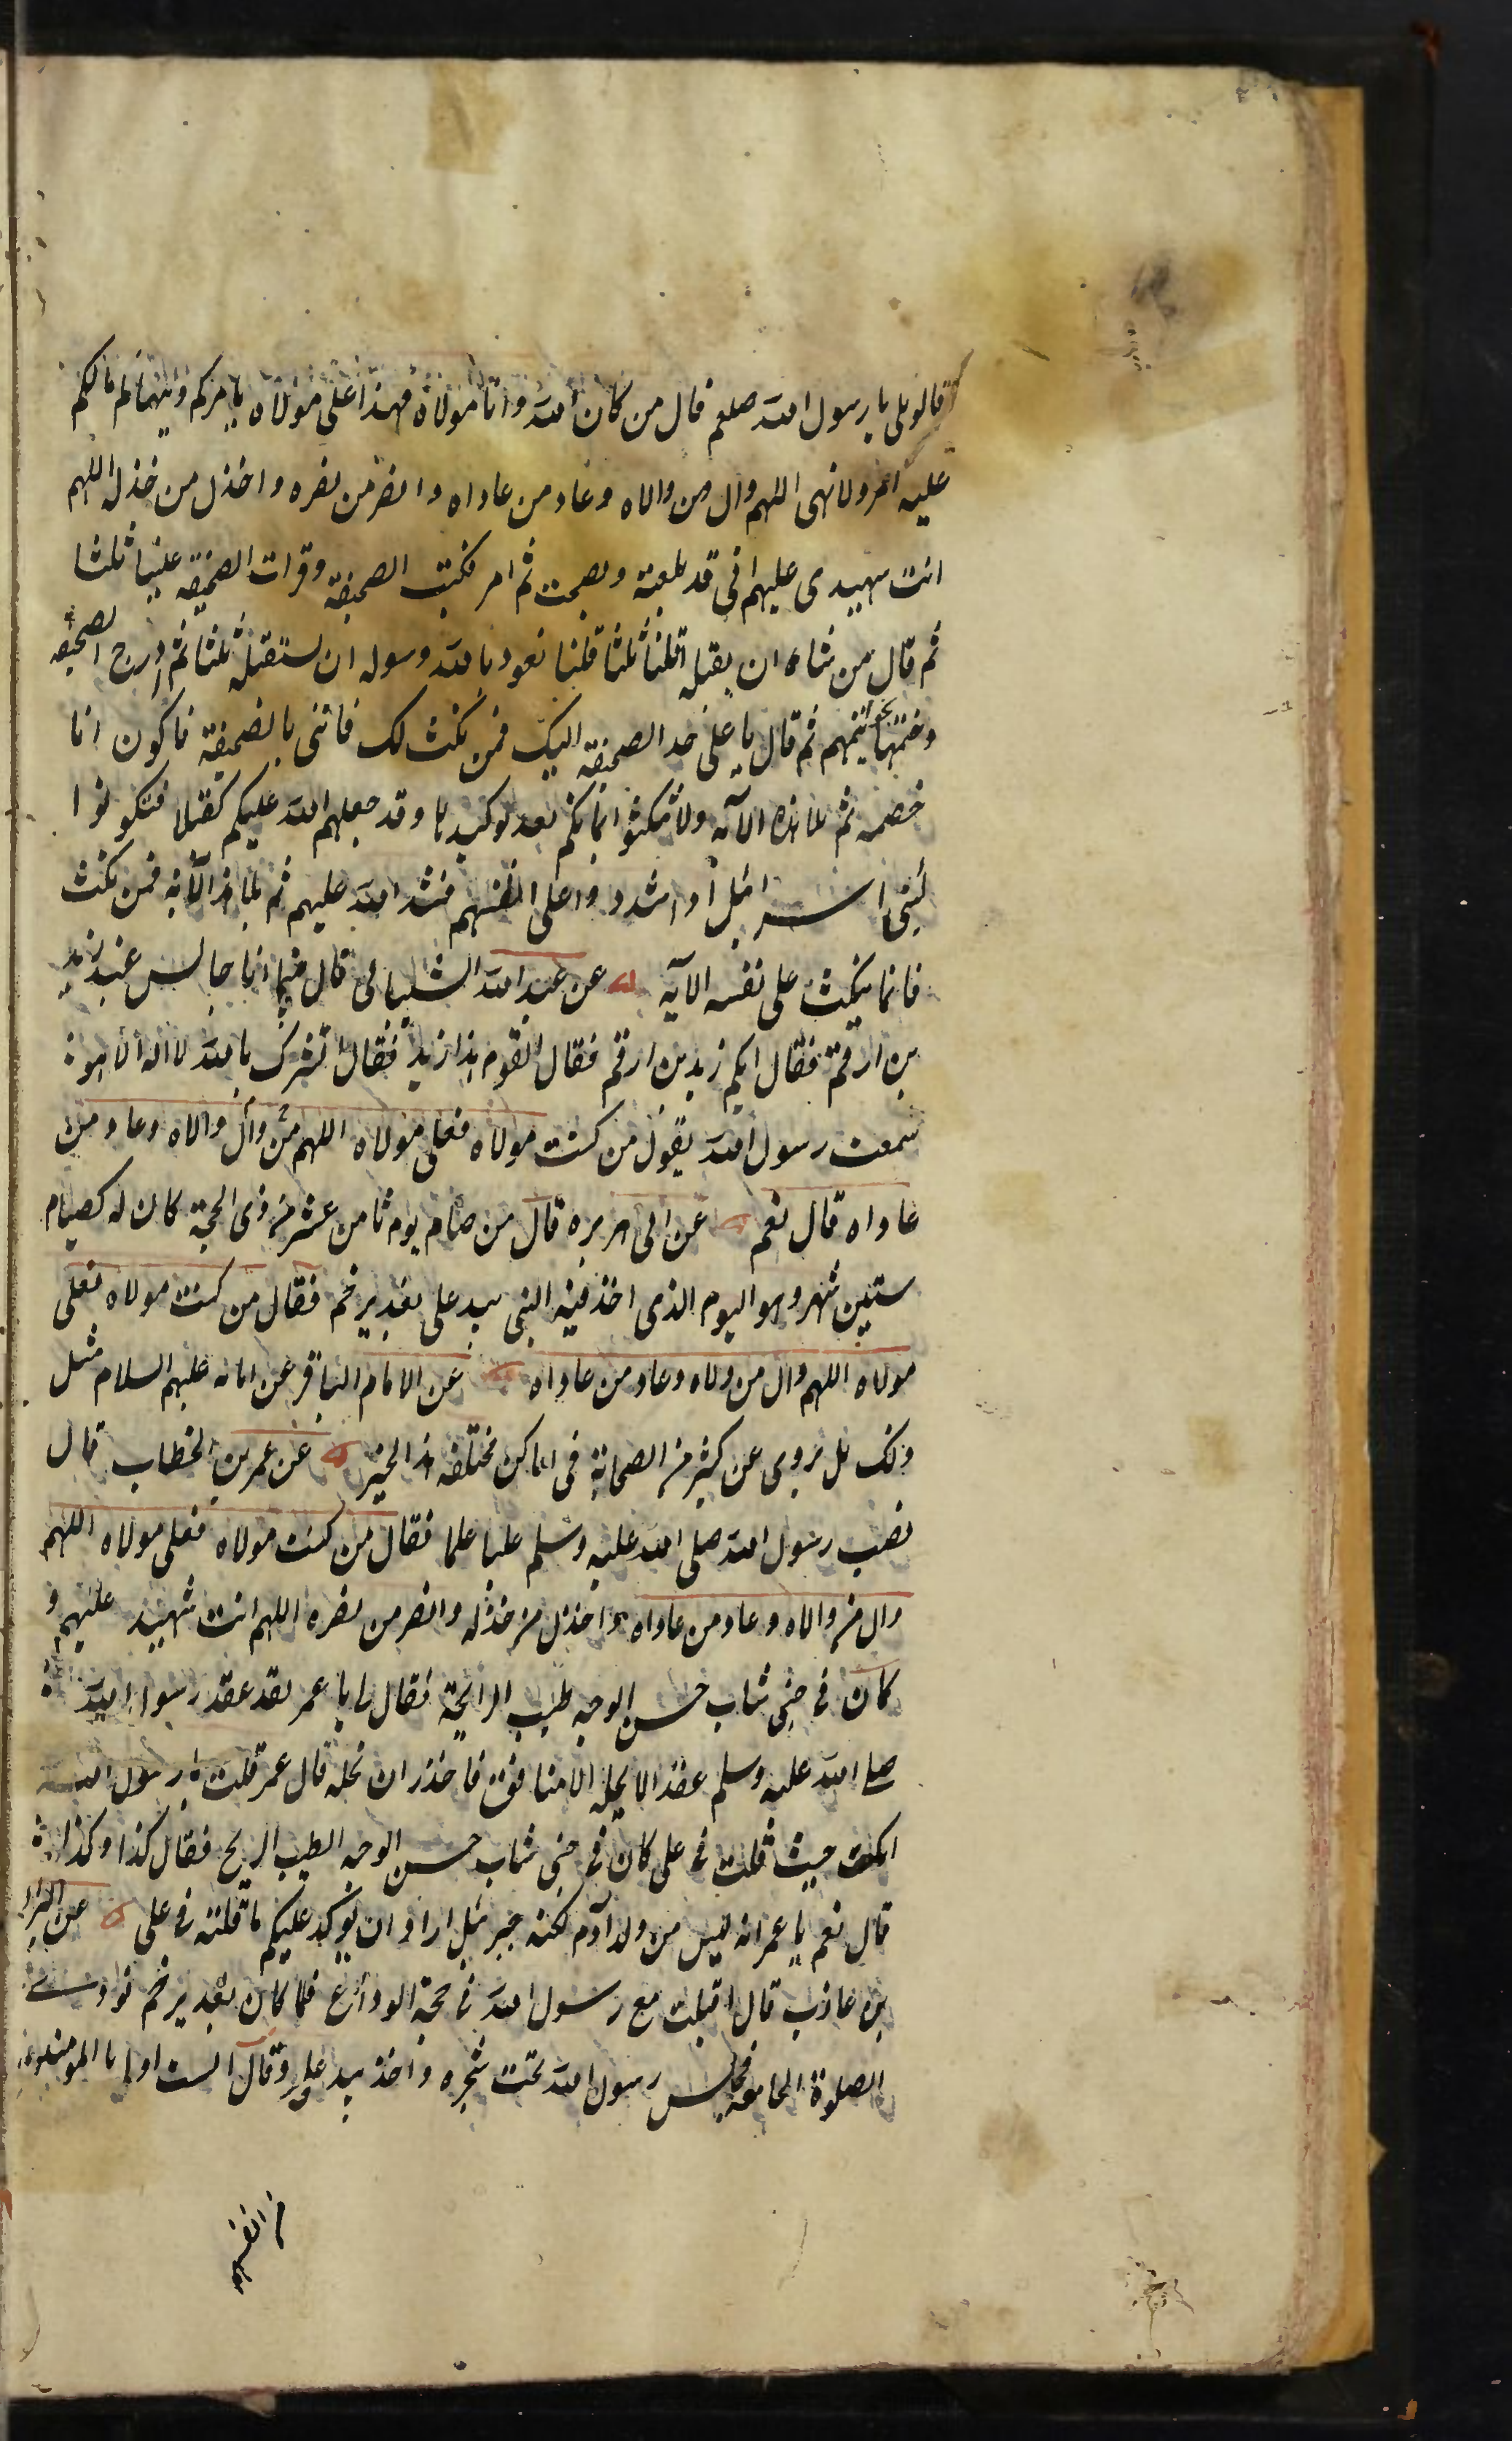 قالو بلى يا رسول الله صلعم قال من كان الله وانا مولاه فهذا على مولاه يامركم وينهاكم مالكم
عليه امر ولا نهى اللهم وال من والاه وعاد من عاداه وانصر من نصره واخذل من خذله اللهم
انت شهيدى عليهم انى قد بلغت ونصحت ثم امر فكتب الصحيفة وقرات الصحيفة علينا ثلثا
ثم قال من شاء ان يقيله اقلنا ثلثا قلنا نعوذ بالله ورسوله ان نستقيله ثلثا ثم ادرج الصحيفة
وختمها بخواتيمهم ثم قال يا على خد الصحيفة اليك فمن نكث لك فاتنى بالصحيفة فاكون انا
خصمه ثم تلا هذه الآية ولا تنكثوا ايمانكم بعد توكيدها وقد جعلهم الله عليكم كفيلا فتكونوا
كبنى اسرائيل اذا شددوا على انفسهم فشد الله عليهم ثم تلا هذ الآية فمن نكث
فانما ينكث على نفسه الآية عن عبد الله الشيبانى قال فيما انا جالس عند زيد
بن ارقم فقال ايكم زيد بن ارقم فقال القوم هذا زيد فقال نشدتك بالله لا اله الا هو
سمعت رسول الله يقول من كنت مولاه فعلى مولاه اللهم من وال والاه وعاد من
عاداه قال نعم عن ابى هريره قال من صام يوم ثامن عشر من ذى الحجة كان له كصيام
ستين شهر وهو اليوم الذى اخذ فيه النبى بيد على بغدير خم فقال من كنت مولاه فعلى
مولاه اللهم وال من ولاه وعاد من عاداه عن الامام الباقر عن ابائه عليهم السلام مثل
ذلك بل يروى عن كثير من الصحابة فى اماكن مختلفه هذ الخبر عن عمر بن الخطاب قال
نصب رسول الله صلى الله عليه وسلم عليا علما فقال من كنت مولاه فعلى مولاه اللهم
وال من والاه وعاد من عاداه واخذل من خذله وانصر من نصره اللهم انت شهيد عليهم و
كان فى جنبى شاب حسن الوجه طيب الرايحة فقال لى يا عمر لقد عقد رسول الله
صلى الله عليه وسلم عقد الا يحله الا منافق فاحذر ان تحله قال عمر قلت يا رسول الله
انك حيث قلت فى على كان فى جنبى شاب حسن الوجه الطيب الريح فقال كذا وكذا
قال نعم يا عمر انه ليس من ولد آدم لكنه جبرئيل اراد ان يؤكد عليكم ما قلته فى على عن البراء
بن عاذب قال اقبلت مع رسول الله فى حجة الوداع فلما كان بغدير خم نودى
الصلوة الجامعه فجلس رسول الله تحت شجره واخذ بيد على وقال الست اولى بالمومنين
من انفسهم